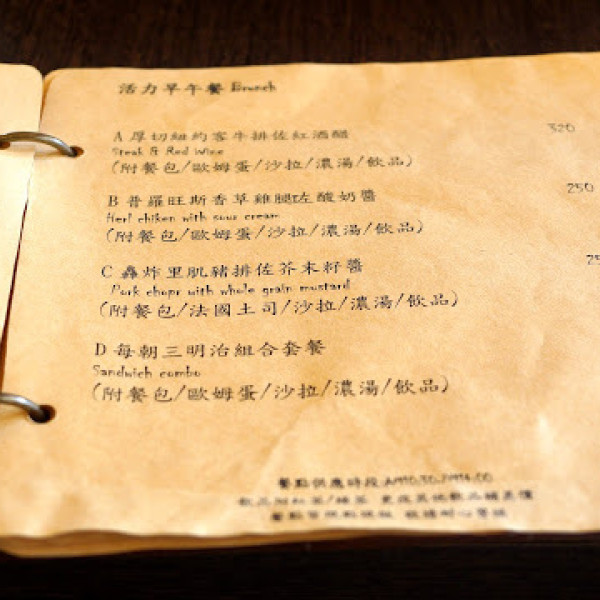 活力早午餐 Brunch
A 厚切紐約客牛排佐紅酒醋 320
Steak & Red Wine
(附餐包/歐姆蛋/沙拉/濃湯/飲品)
B 普羅旺斯香草雞腿佐酸奶醬 250
Herl chiken with sour cream
(附餐包/歐姆蛋/沙拉/濃湯/飲品)
C 轟炸里肌豬排佐芥末籽醬
Pork chopr with whole grain mustard
(附餐包/法國土司/沙拉/濃湯/飲品)
D 每朝三明治組合套餐
Sandwich combo
(附餐包/歐姆蛋/沙拉/濃湯/飲品)
餐點供應時段
飲品附紅茶/綠茶 更改其他飲品補差價